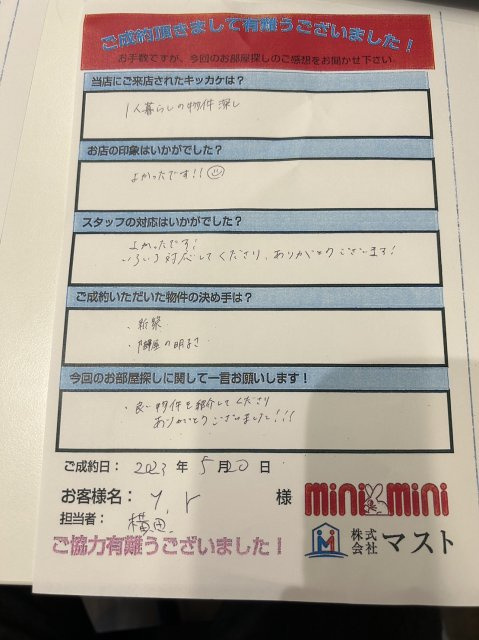 ご成約頂きまして有難うございました！
お手数ですが、今回のお部屋探しのご感想をお聞かせ下さい
当店にご来店されたキッカケは？
1人暮らしの物件探し
お店の印象はいかがでした？
よかったです!!
スタッフの対応はいかがでした？
よかったです!
いろいろ対応してくださり、ありがとうございます!
ご成約いただいた物件の決め手は？
・新築
・部屋の明るさ
今回のお部屋探しに関して一言お願いします！
・良い物件を紹介してくださり
ありがとうございました!!!
ご成約日： 2023 年 5 月 20 日
お客様名： Y. r 様
mini mini
担当者： 横田
株式会社 マスト
ご協力有難うございました！